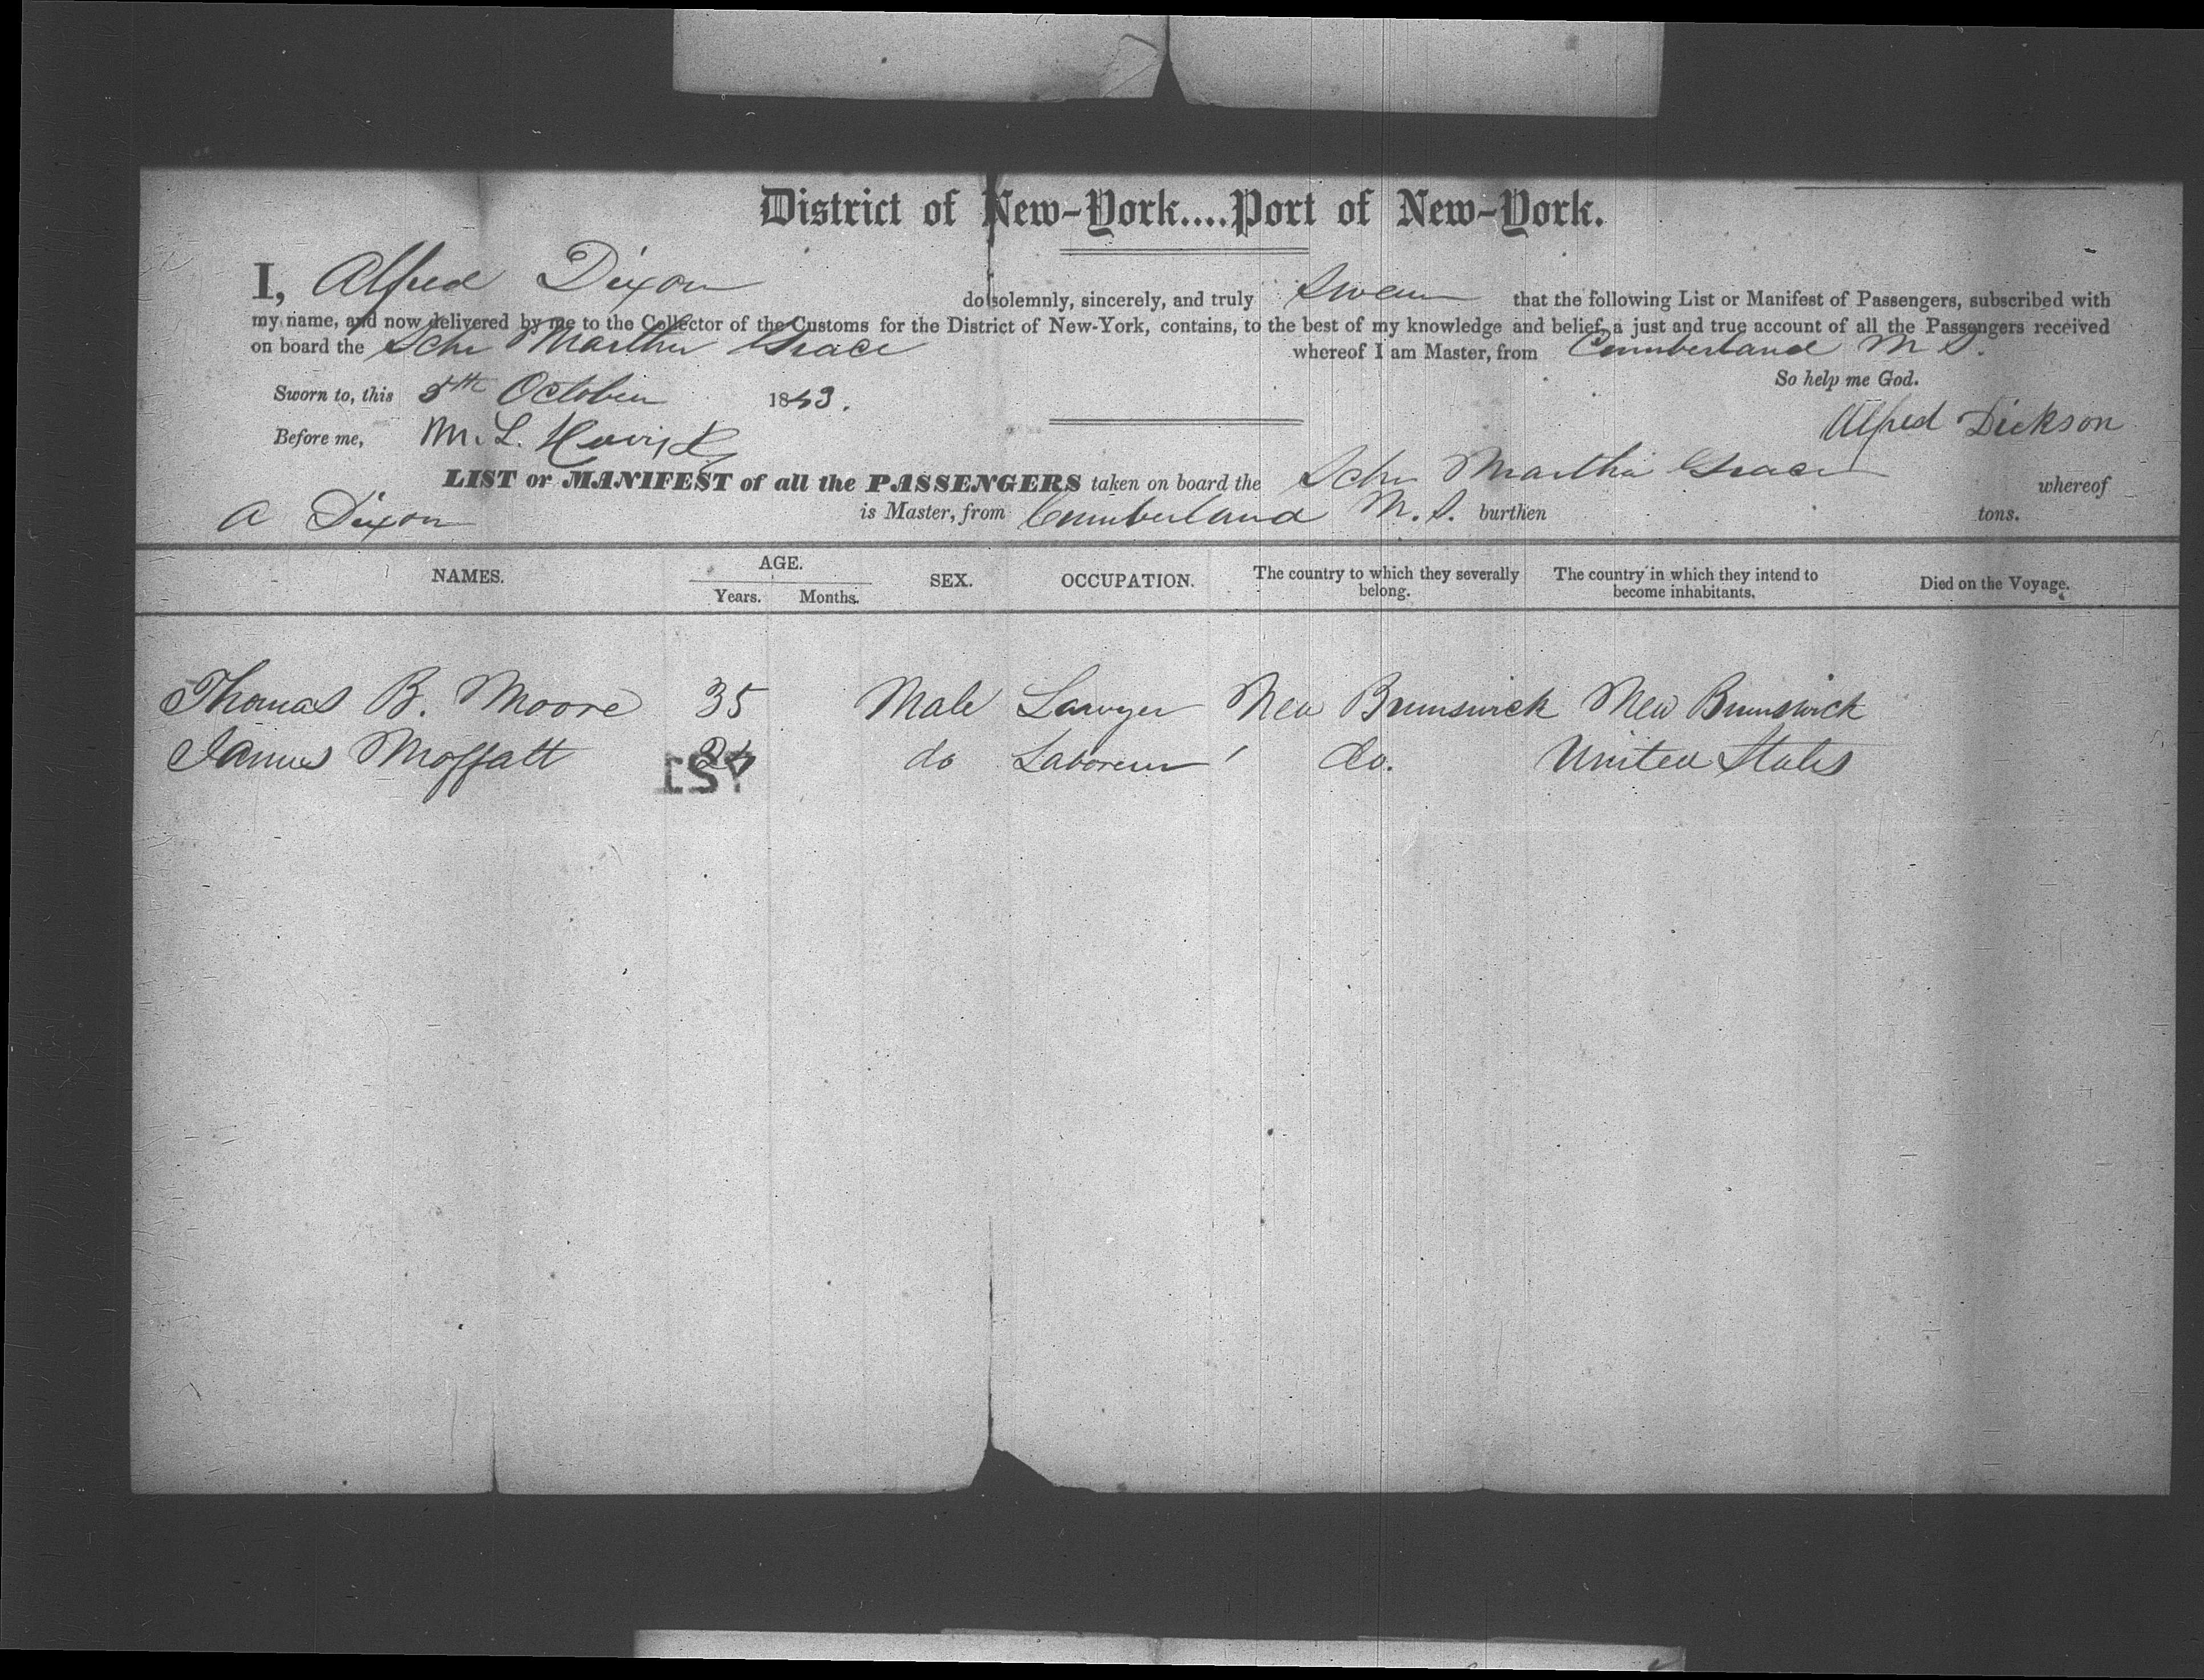 District of New-York....Port of New-York.
I, Alfred Dixon do solemnly, sincerely, and truly Swear that the following List or Manifest of Passengers, subscribed with
my name, and now delivered by me to the Collector of the Customs for the District of New-York, contains, to the best of my knowledge and belief, a just and true account of all the Passengers received
on board the Schr Martha Grace whereof I am Master, from Cumberland N S.
So help me God.
Sworn to, this 5th October 1843.
Alfred Dickson
Before me, M. L.
LIST or MANIFEST of all the PASSENGERS taken on board the Schr Martha Grace whereof
A Dixon is Master, from Cumberland N. S. burthen tons.
NAMES. AGE. Years. Months. SEX. OCCUPATION. The country to which they severally belong. The country in which they intend to become inhabitants. Died on the Voyage.
Thomas B. Moore 35 Male Lawyer New Brunswick New Brunswick
James Moffatt 24 do Laborer do. United States